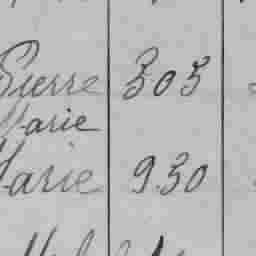 Pierre 305
Marie
Marie 930